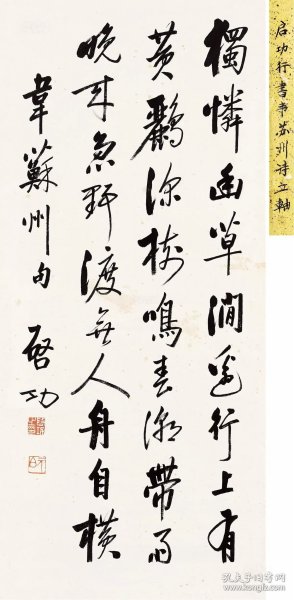 启功行書韦苏州诗立軸
獨憐幽草澗邊行上有
黃鸝深樹鳴春潮帶雨
晚來急野渡無人舟自橫
韋蘇州句 啓功
孔夫子旧书网
www.kongfz.com